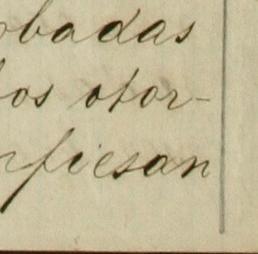 obadas
os otor-
nfiesan